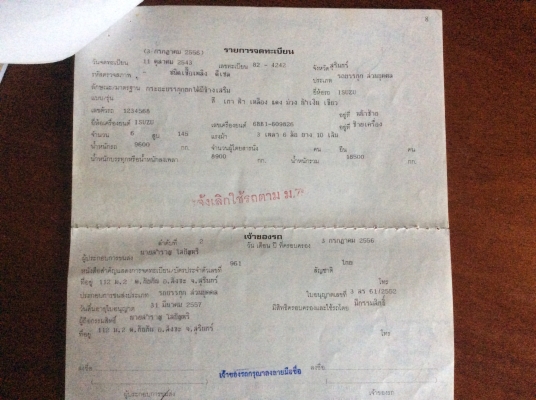 (3 กรกฎาคม 2556) รายการจดทะเบียน
วันจดทะเบียน 11 ตุลาคม 2543 เลขทะเบียน 82 - 4243 จังหวัด สุรินทร์
ชนิดเชื้อเพลิง ดีเซล ประเภท รถบรรทุก ส่วนบุคคล
ลักษณะ/มาตรฐาน กระบะบรรทุกยกได้มีข้างเสริม ยี่ห้อรถ ISUZU
แบบ/รุ่น สี เทา ฟ้า เหลือง แดง ม่วง น้ำเงิน เขียว
เลขตัวรถ 1234568 อยู่ที่
ยี่ห้อเครื่องยนต์ ISUZU เลขเครื่องยนต์ อยู่ที่
จำนวน 6 สูบ 145 แรงม้า 2 เพลา 6 ล้อ ยาง 10 เส้น
น้ำหนักรถ 9600 กก. จำนวนผู้โดยสารนั่ง คน ยืน คน
น้ำหนักบรรทุกหรือน้ำหนักลงเพลา 8900 กก. น้ำหนักรวม 18500 กก.
แจ้งเลิกใช้รถตาม ม.79
เจ้าของรถ
ลำดับที่ 2 วัน เดือน ปี ที่ครอบครอง 3 กรกฎาคม 2556
ผู้ประกอบการขนส่ง
หนังสือสำคัญแสดงการจดทะเบียน/บัตรประจำตัวเลขที่ 961 สัญชาติ ไทย
ที่อยู่ 112 ม.2 อ.สังขะ จ.สุรินทร์ โทร
ประกอบการขนส่งประเภท รถบรรทุก ส่วนบุคคล ใบอนุญาตเลขที่ 3 สร 61/2552
วันสิ้นอายุใบอนุญาต 31 มีนาคม 2557 มีสิทธิครอบครองและใช้รถโดย มีกรรมสิทธิ์
ผู้ถือกรรมสิทธิ์
ที่อยู่ 112 ม.2 อ.สังขะ จ.สุรินทร์ โทร
เจ้าของรถกรุณาลงลายมือชื่อ
ลงชื่อ ลงชื่อ
ผู้ประกอบการขนส่ง เจ้าของรถ